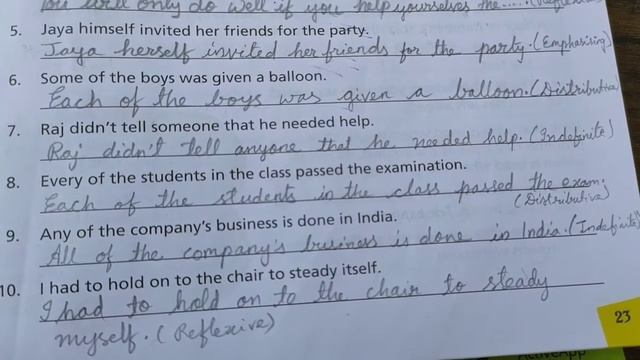 you will only do well if you help yourselves the.....
5. Jaya himself invited her friends for the party.
Jaya herself invited her friends for the party. (Emphasising)
6. Some of the boys was given a balloon.
Each of the boys was given a balloon. (Distributive)
7. Raj didn't tell someone that he needed help.
Raj didn't tell anyone that he needed help. (Indefinite)
8. Every of the students in the class passed the examination.
Each of the students in the class passed the exam.
(Distributive)
9. Any of the company's business is done in India.
All of the company's business is done in India. (Indefinite)
10. I had to hold on to the chair to steady itself.
I had to hold on to the chair to steady
myself. (Reflexive)
23
ActiveApp